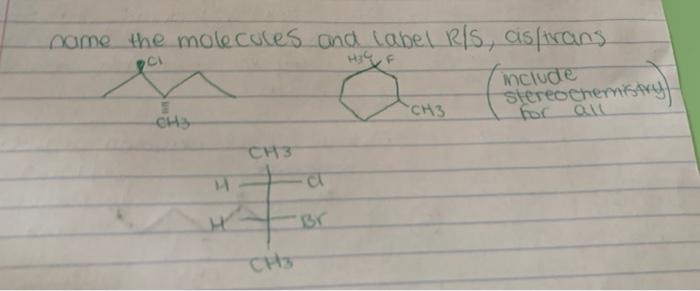 name the molecules and label R/S, cis/trans
Cl
CH3
H3C F
CH3
(include
stereochemistry)
for all
CH3
H Cl
H Br
CH3